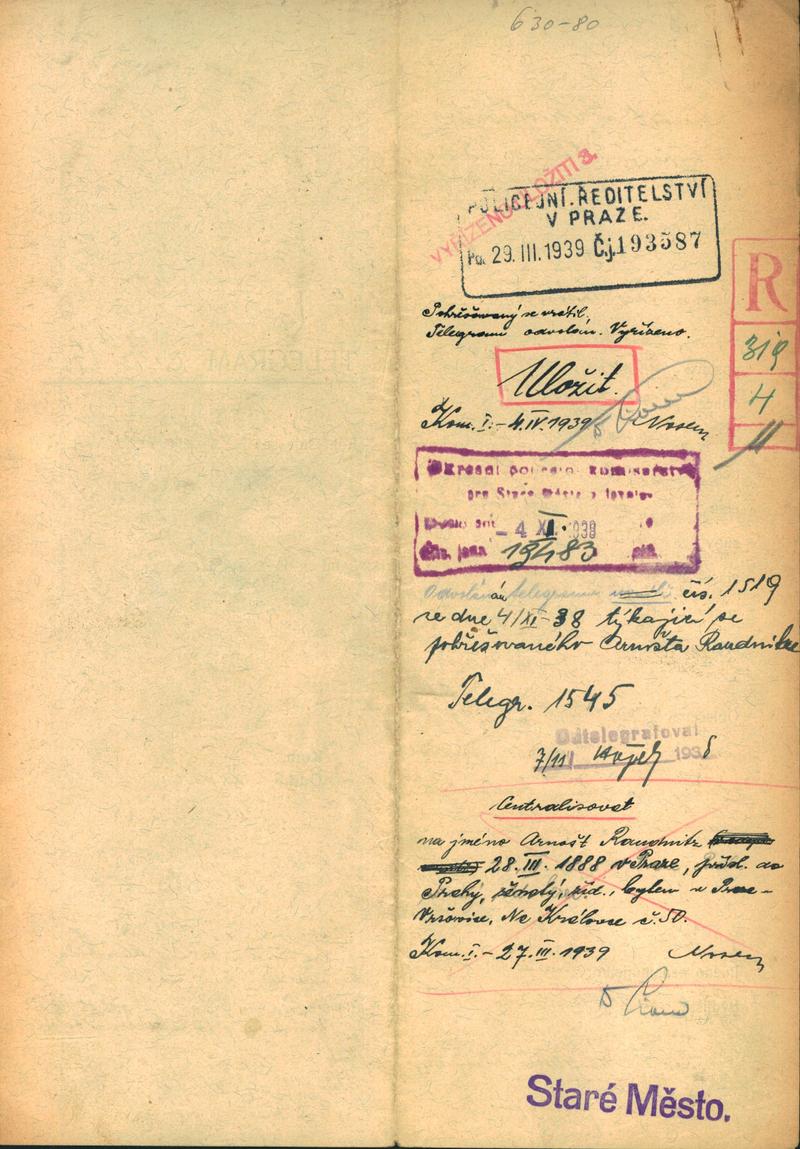 630-80
VYŘÍZENO ULOŽITI
POLICEJNÍ ŘEDITELSTVÍ
V PRAZE.
29. III. 1939 Čj. 193587
R
319
4
Pohřešovaný se vrátil.
Telegram odvolán. Vyřízeno.
Uložit.
Kom. I. - 4. IV. 1939 Nosek
Okresní policejní komisařství
pro Staré Město a Josefov
- 4 XI. 1938
Čís. jedn. 19483
Odvolán telegram čís. 1519
ze dne 4/XI-38 týkající se
pohřešovaného Arnošta Raudnitze
Telegr. 1545
Odtelegrafoval
7/11 193 8
Centralisovat
na jméno Arnošt Raudnitz
28. III. 1888 v Praze, přísl. do
Prahy, ženatý, žid., bytem v Praze-
Vršovice, Na Královce č. 50.
Kom. I. - 27. III. 1939 Nosek
Staré Město.